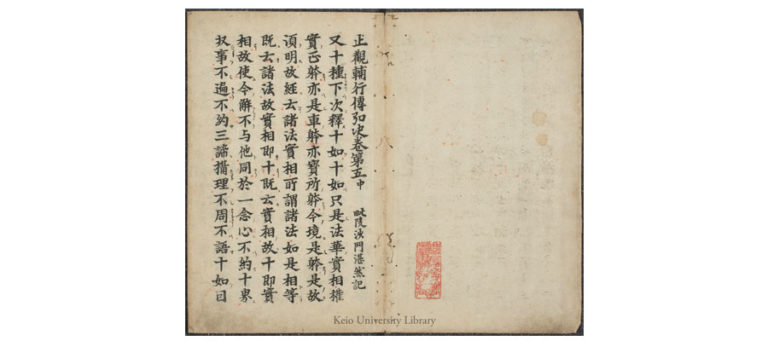 止觀輔行傳弘决卷第五中 毗陵沙門湛然記
又十種下次釋十如十如只是法華實相權
實正躰亦是車躰亦實所躰今境是躰是故
須明故經云諸法實相所謂諸法如是相等
既云諸法故實相即十既云實相故十即實
相故使今辭不与他同於一念心不約十界
収事不遍不約三諦攝理不周不語十如因
Keio University Library